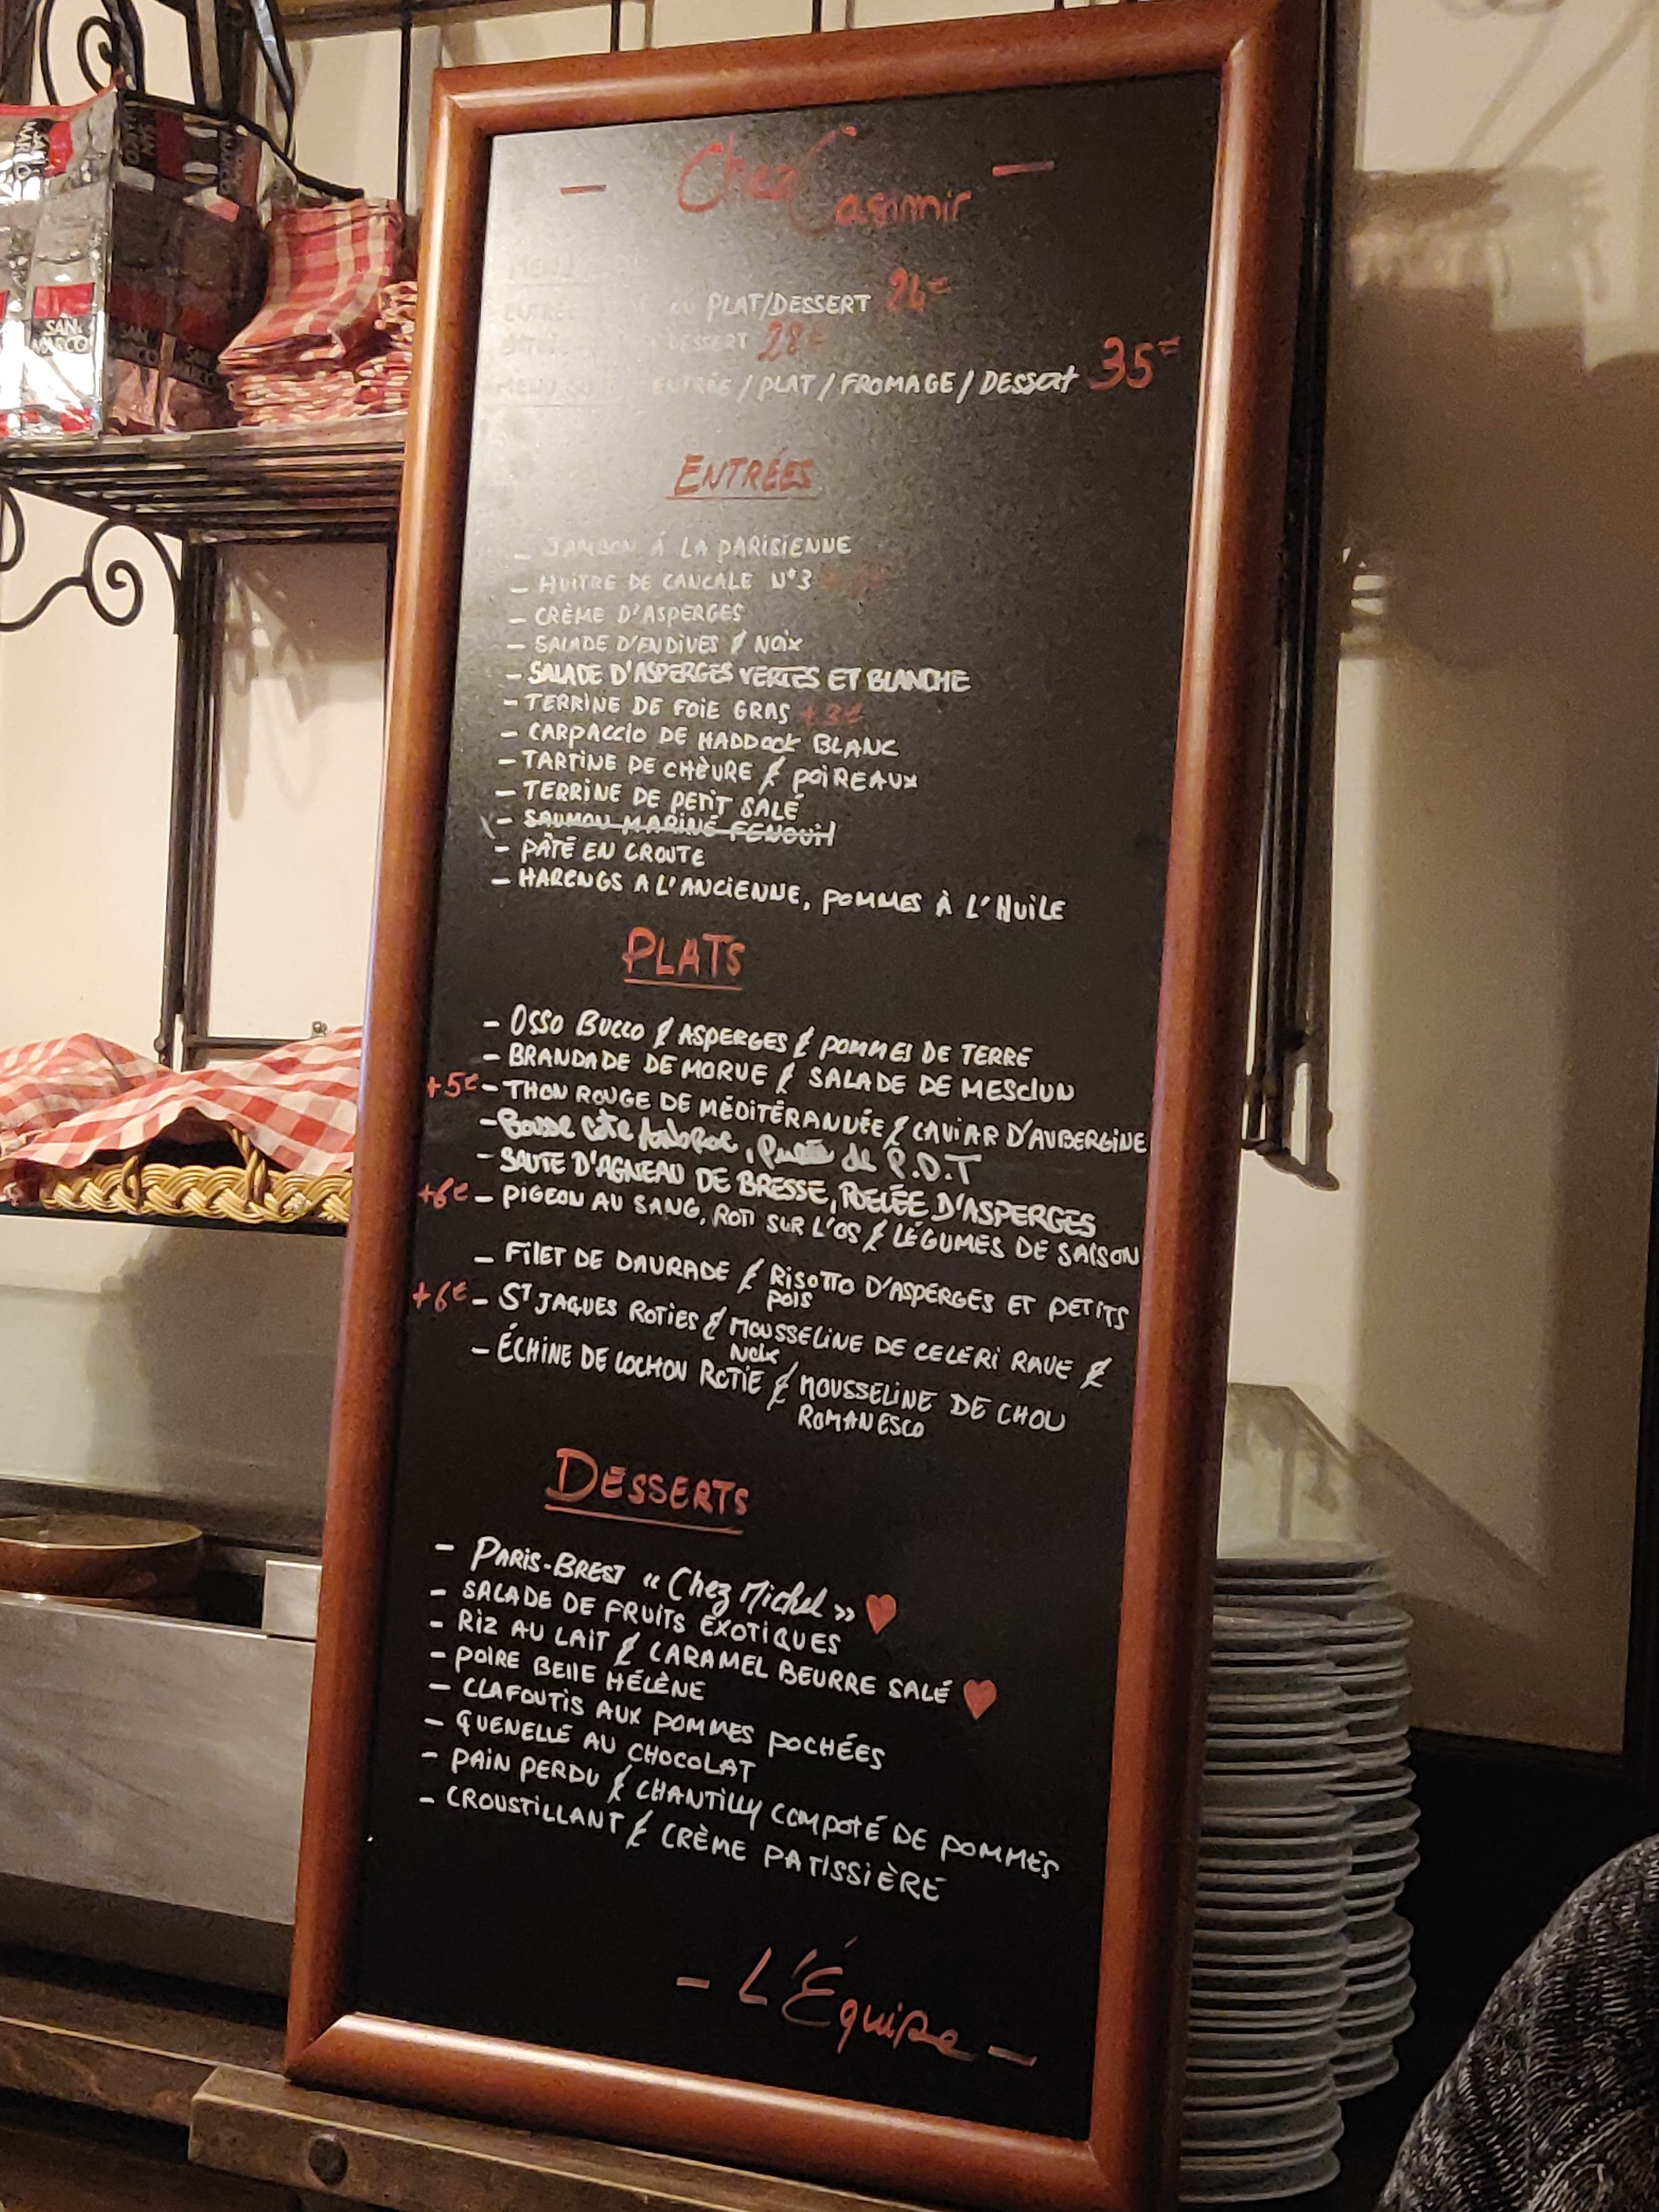 SAN MARCO
SAN MARCO
— Chez Casimir —
MENU
ENTRÉE OU PLAT/DESSERT 26€
DESSERT 28€
MENU ENTRÉE / PLAT / FROMAGE / DESSERT 35€
ENTRÉES
- JAMBON À LA PARISIENNE
- HUITRE DE CANCALE N°3
- CRÈME D'ASPERGES
- SALADE D'ENDIVES & NOIX
- SALADE D'ASPERGES VERTES ET BLANCHE
- TERRINE DE FOIE GRAS +3€
- CARPACCIO DE HADDOCK BLANC
- TARTINE DE CHÈVRE & POIREAUX
- TERRINE DE PETIT SALÉ
X - SAUMON MARINÉ FENOUIL
- PÂTÉ EN CROUTE
- HARENGS A L'ANCIENNE, POMMES À L'HUILE
PLATS
- OSSO BUCCO & ASPERGES & POMMES DE TERRE
- BRANDADE DE MORUE & SALADE DE MESCLUN
+5€ - THON ROUGE DE MÉDITÉRANNÉE & CAVIAR D'AUBERGINE
- Basse côte, Purée de P.D.T
- SAUTE D'AGNEAU DE BRESSE, POELÉE D'ASPERGES
+6€ - PIGEON AU SANG, ROTI SUR L'OS & LÉGUMES DE SAISON
- FILET DE DAURADE & RISOTTO D'ASPERGES ET PETITS
POIS
+6€ - ST JAQUES ROTIES & MOUSSELINE DE CELERI RAVE &
NOIX
- ÉCHINE DE COCHON ROTIE & MOUSSELINE DE CHOU
ROMANESCO
DESSERTS
- PARIS-BREST « Chez Michel » ♥
- SALADE DE FRUITS EXOTIQUES
- RIZ AU LAIT & CARAMEL BEURRE SALÉ ♥
- POIRE BELLE HÉLÈNE
- CLAFOUTIS AUX POMMES POCHÉES
- QUENELLE AU CHOCOLAT
- PAIN PERDU & CHANTILLY COMPOTÉ DE POMMES
- CROUSTILLANT & CRÈME PATISSIÈRE
- L'Équipe -